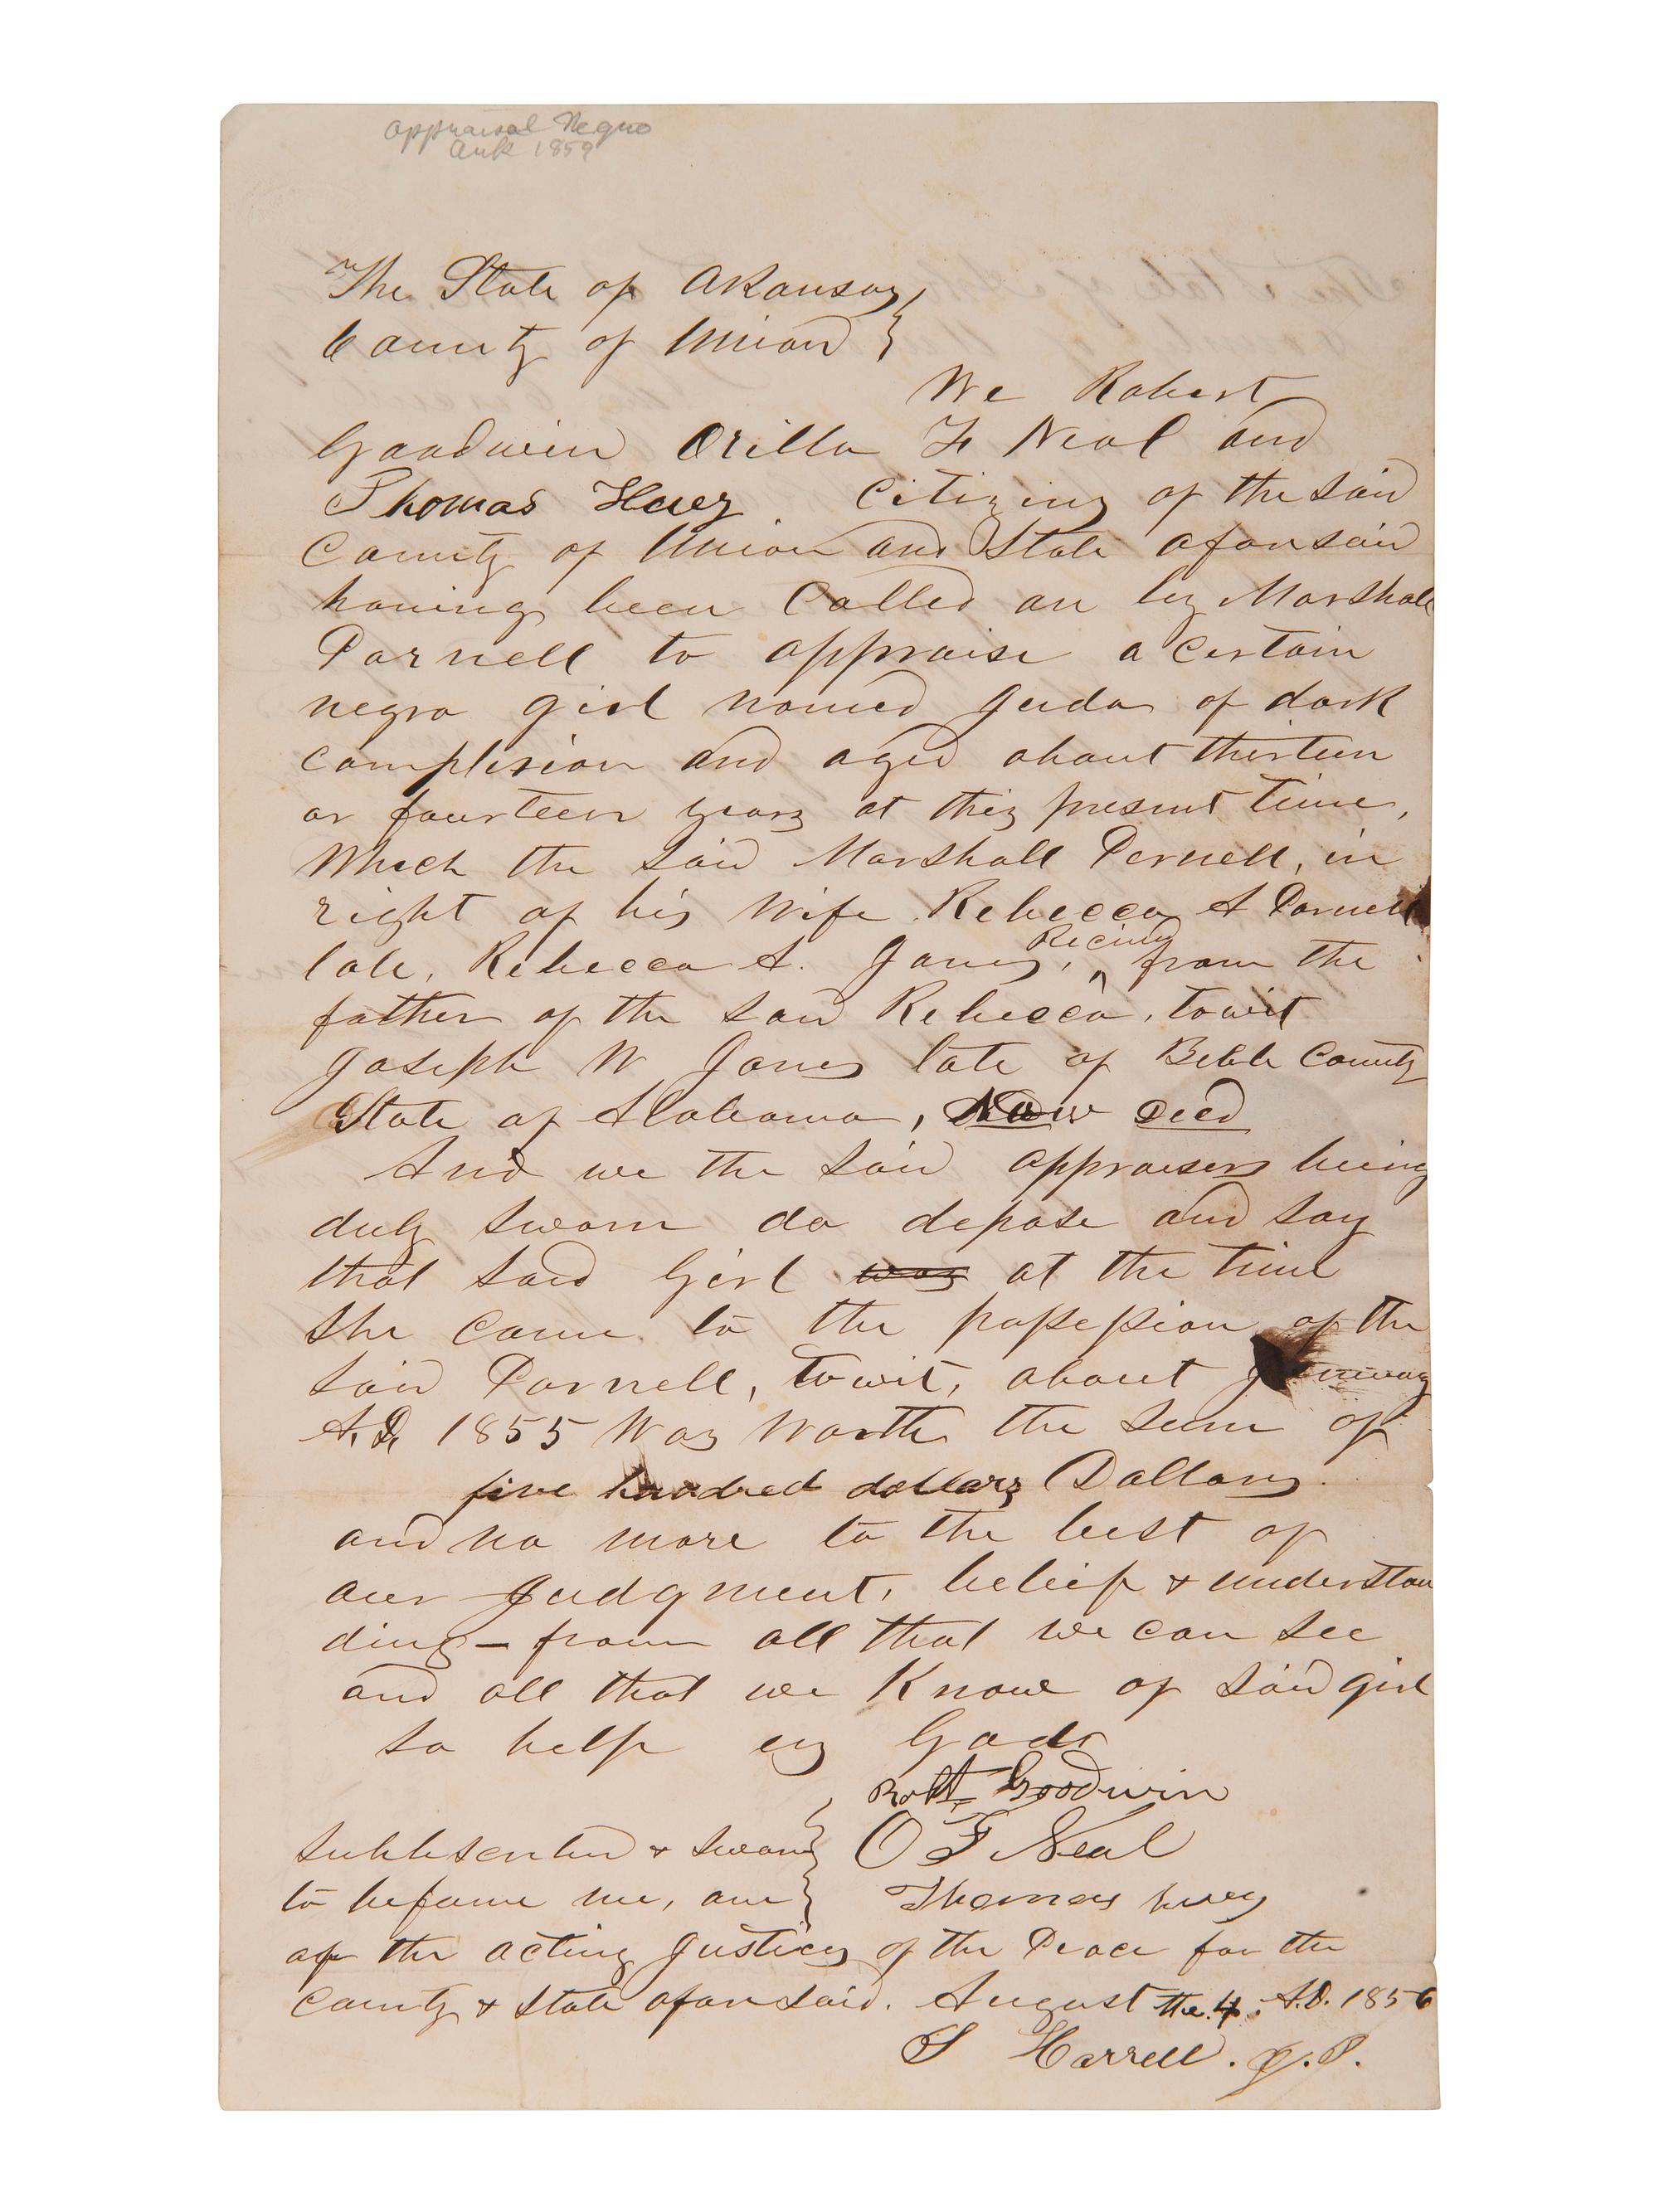 appraisal Negro
Ark 1859
The State of Arkansas
County of Union
We Robert
Goodwin Orilla F Neal and
Thomas Huey Citizins of the said
County of Union and State aforesaid
having been Called on by Marshall
Parnell to appraise a certain
negro girl named Juda of dark
complexion and aged about thirteen
or fourteen years at this present time,
Which the said Marshall Pernell, in
right of his Wife Rebecca A Parnell
late, Rebecca A. Jones, Recived from the
father of the said Rebecca, towit
Joseph W Jones late of Bibb County
State of Alabama, Now Deed
And we the said appraisers being
duly sworn do depose and say
that said Girl was at the time
she came to the possession of the
said Parnell, towit, about January
A.D. 1855 Was Worth the sum of
five hundred dollars Dollars.
and no more to the best of
our Judgment, belief & understan
ding – from all that we can see
and all that we Know of said girl
so help us God
Robt Goodwin
O F Neal
Subbscribed & sworn
to before me, one
Thomas huey
of the acting Justices of the Peace for the
County & State aforesaid. August the 4. A.D. 1856
S Harrell. J.P.